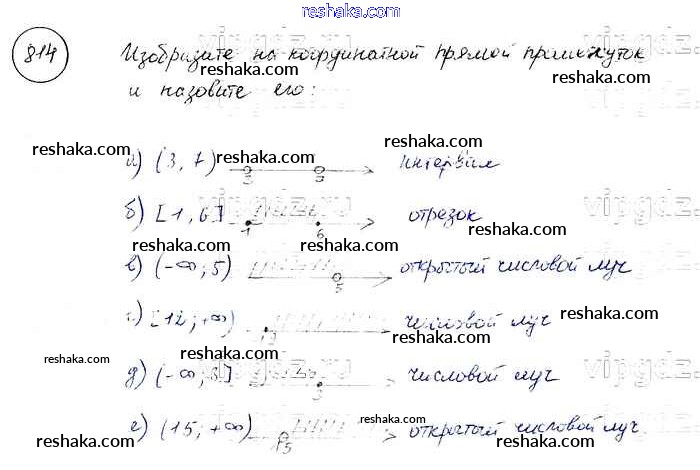 reshaka.com
814 Изобразите на координатной прямой промежуток
reshaka.com reshaka.com
и назовите его:
vipgdz.ru vipgdz.ru
reshaka.com reshaka.com
а) (3, 7) 3 интервал
reshaka.com
vipgdz.ru vipgdz.ru
б) [1, 6] 1 6 отрезок
reshaka.com reshaka.com
в) (-∞; 5) 5 открытый числовой луч
reshaka.com reshaka.com
г) [12; +∞) 12 числовой луч
reshaka.com
reshaka.com reshaka.com
vipgdz.ru vipgdz.ru
д) (-∞, 3] 3 числовой луч
reshaka.com
reshaka.com
е) (15; +∞) 15 открытый числовой луч
reshaka.com reshaka.com